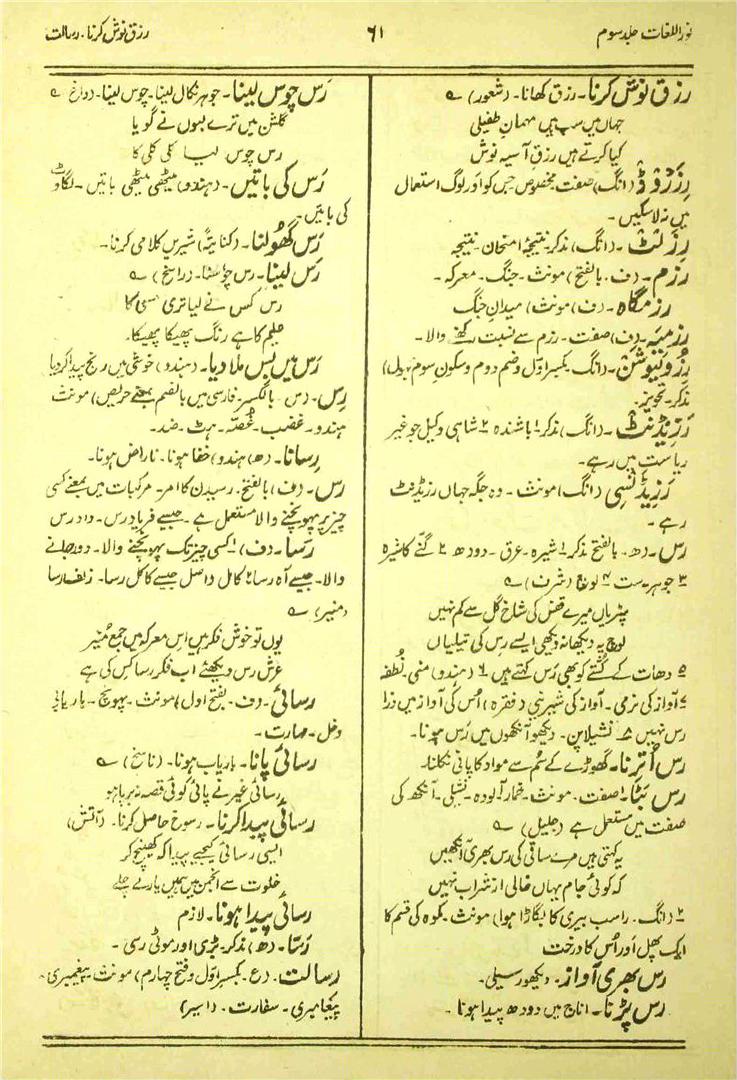 نور اللغات جلد سوم
۶۱
رزق نوش کرنا۔ رسالت
رزق نوش کرنا۔ رزق کھانا۔ (شعور) ؎
جہاں میں سب ہیں مہمانِ طفیلی
کیا کرتے ہیں رزقِ آسیہ نوش
رِزَرْوڈْ (انگ) صفت مخصوص جس کو اور لوگ استعمال
میں نہ لا سکیں۔
رِزلٹ۔ (انگ) مذکر نتیجۂ امتحان۔ نتیجہ
رزم۔ (ف۔ بالفتح) مونث۔ جنگ۔ معرکہ۔
رزمگاہ۔ (ف) مونث) میدانِ جنگ
رزمیہ۔ (ف) صفت۔ رزم سے نسبت رکھنے والا۔
رِزُولیوشن۔ (انگ۔ بکسر اوّل وضم دوم وسکون سوم)
مذکر۔ تجویز۔
رَزیڈنٹ۔ (انگ) مذکر ۱ باشندہ ۲ شاہی وکیل جو غیر
ریاست میں رہے۔
رَزِیڈنسی (انگ) مونث۔ وہ جگہ جہاں رزیڈنٹ
رہے۔
رس۔ (ھ۔ بالفتح) مذکر ۱ شیرہ۔ عرق۔ دودھ ۲ گنّے کا شیرہ
۳ جوہر۔ ست ۴ لوچ (شرف) ؎
پتریاں میرے قفس کی شاخ گل سے کم نہیں
لوچ یہ دیکھا نہ دیکھی ایسے رس کی تیلیاں
۵ دھات کے کُشتے کو بھی رَس کہتے ہیں ۶ (ہندو) منی۔ نُطفہ
۷ آواز کی نرمی۔ آواز کی شیرینی (فقرہ) اُس کی آواز میں ذرا
رس نہیں ۸ نشیلا پن۔ دیکھو آنکھوں میں رَس ہونا۔
رس اُترنا۔ گھوڑے کے سُم سے مواد کا پانی نکلنا۔
رس بھرا۔ ۱ صفت۔ مونث۔ خمار آلودہ۔ نشیلی۔ آنکھ کی
صفت میں مستعمل ہے (جلیل) ؎
یہ کہتی ہیں مرے ساقی کی رس بھری آنکھیں
کہ کوئی جام یہاں خالی از شراب نہیں
۲ (انگ۔ راسپ بیری کا بگاڑا ہوا) مونث۔ مکوہ کی قسم کا
ایک پھل اور اُس کا درخت
رس بھری آواز۔ دیکھو رسیلی۔
رس پڑنا۔ اناج میں دودھ پیدا ہونا۔
رَس چوس لینا۔ جوہر نکال لینا۔ چوس لینا۔ (داغ) ؎
گلشن میں ترے لبوں نے گویا
رس چوس لیا کلی کلی کا
رَس کی باتیں۔ (ہندو) میٹھی میٹھی باتیں۔ لگاوٹ
کی باتیں۔
رَس گھولنا۔ (کنایتہً) شیریں کلامی کرنا۔
رَس لینا۔ رس چوسنا۔ (راسخ) ؎
رس کس نے لیا تری مسی کا
چلم کا ہے رنگ پھیکا پھیکا۔
رَس میں بِس ملا دیا۔ (ہندو) خوشی میں رنج پیدا کر دیا
رِس۔ (س۔ بالکسر۔ فارسی میں بالضم بمعنے حریص) مونث
ہندو۔ غضب۔ غُصّہ۔ ہٹ۔ ضد۔
رِسانا۔ (ھ) ہندو) خفا ہونا۔ ناراض ہونا۔
رس۔ (ف) بالفتح۔ رسیدن کا امر۔ مرکبات میں بمعنے کسی
چیز پر پہونچنے والا مستعمل ہے۔ جیسے فریاد رس۔ داد رس
رَسا۔ (ف) ۱ کسی چیز تک پہونچنے والا۔ دور جانے
والا۔ جیسے آہ رسا ۲ کامل واصل جیسے کامل رسا۔ زلف رسا
(منیر) ؎
یوں تو خوش فکر ہیں اس معرکہ میں جمع مُنیر
عرش رس دیکھئے اب فکر رسا کس کی ہے
رسائی۔ (ف۔ بفتح اول) مونث۔ پہونچ۔ باریابی
دخل۔ مہارت۔
رسائی پانا۔ باریاب ہونا۔ (ناسخ) ؎
رسائی غیر نے پائی کوئی قصہ نہ برپا ہو
رسائی پیدا کرنا۔ رسوخ حاصل کرنا۔ (آتش)
ایسی رسائی کیجیے پیدا کہ کھینچ کر
خلوت سے انجمن میں ہمیں یار لے چلے
رسائی پیدا ہونا۔ لازم
رَسّا۔ (ھ) مذکر۔ بڑی اور موٹی رسی۔
رسالت۔ (ع۔ بکسر اوّل وفتح چہارم) مونث۔ پیغمبری۔
پیغامبری۔ سفارت۔ (اسیر)